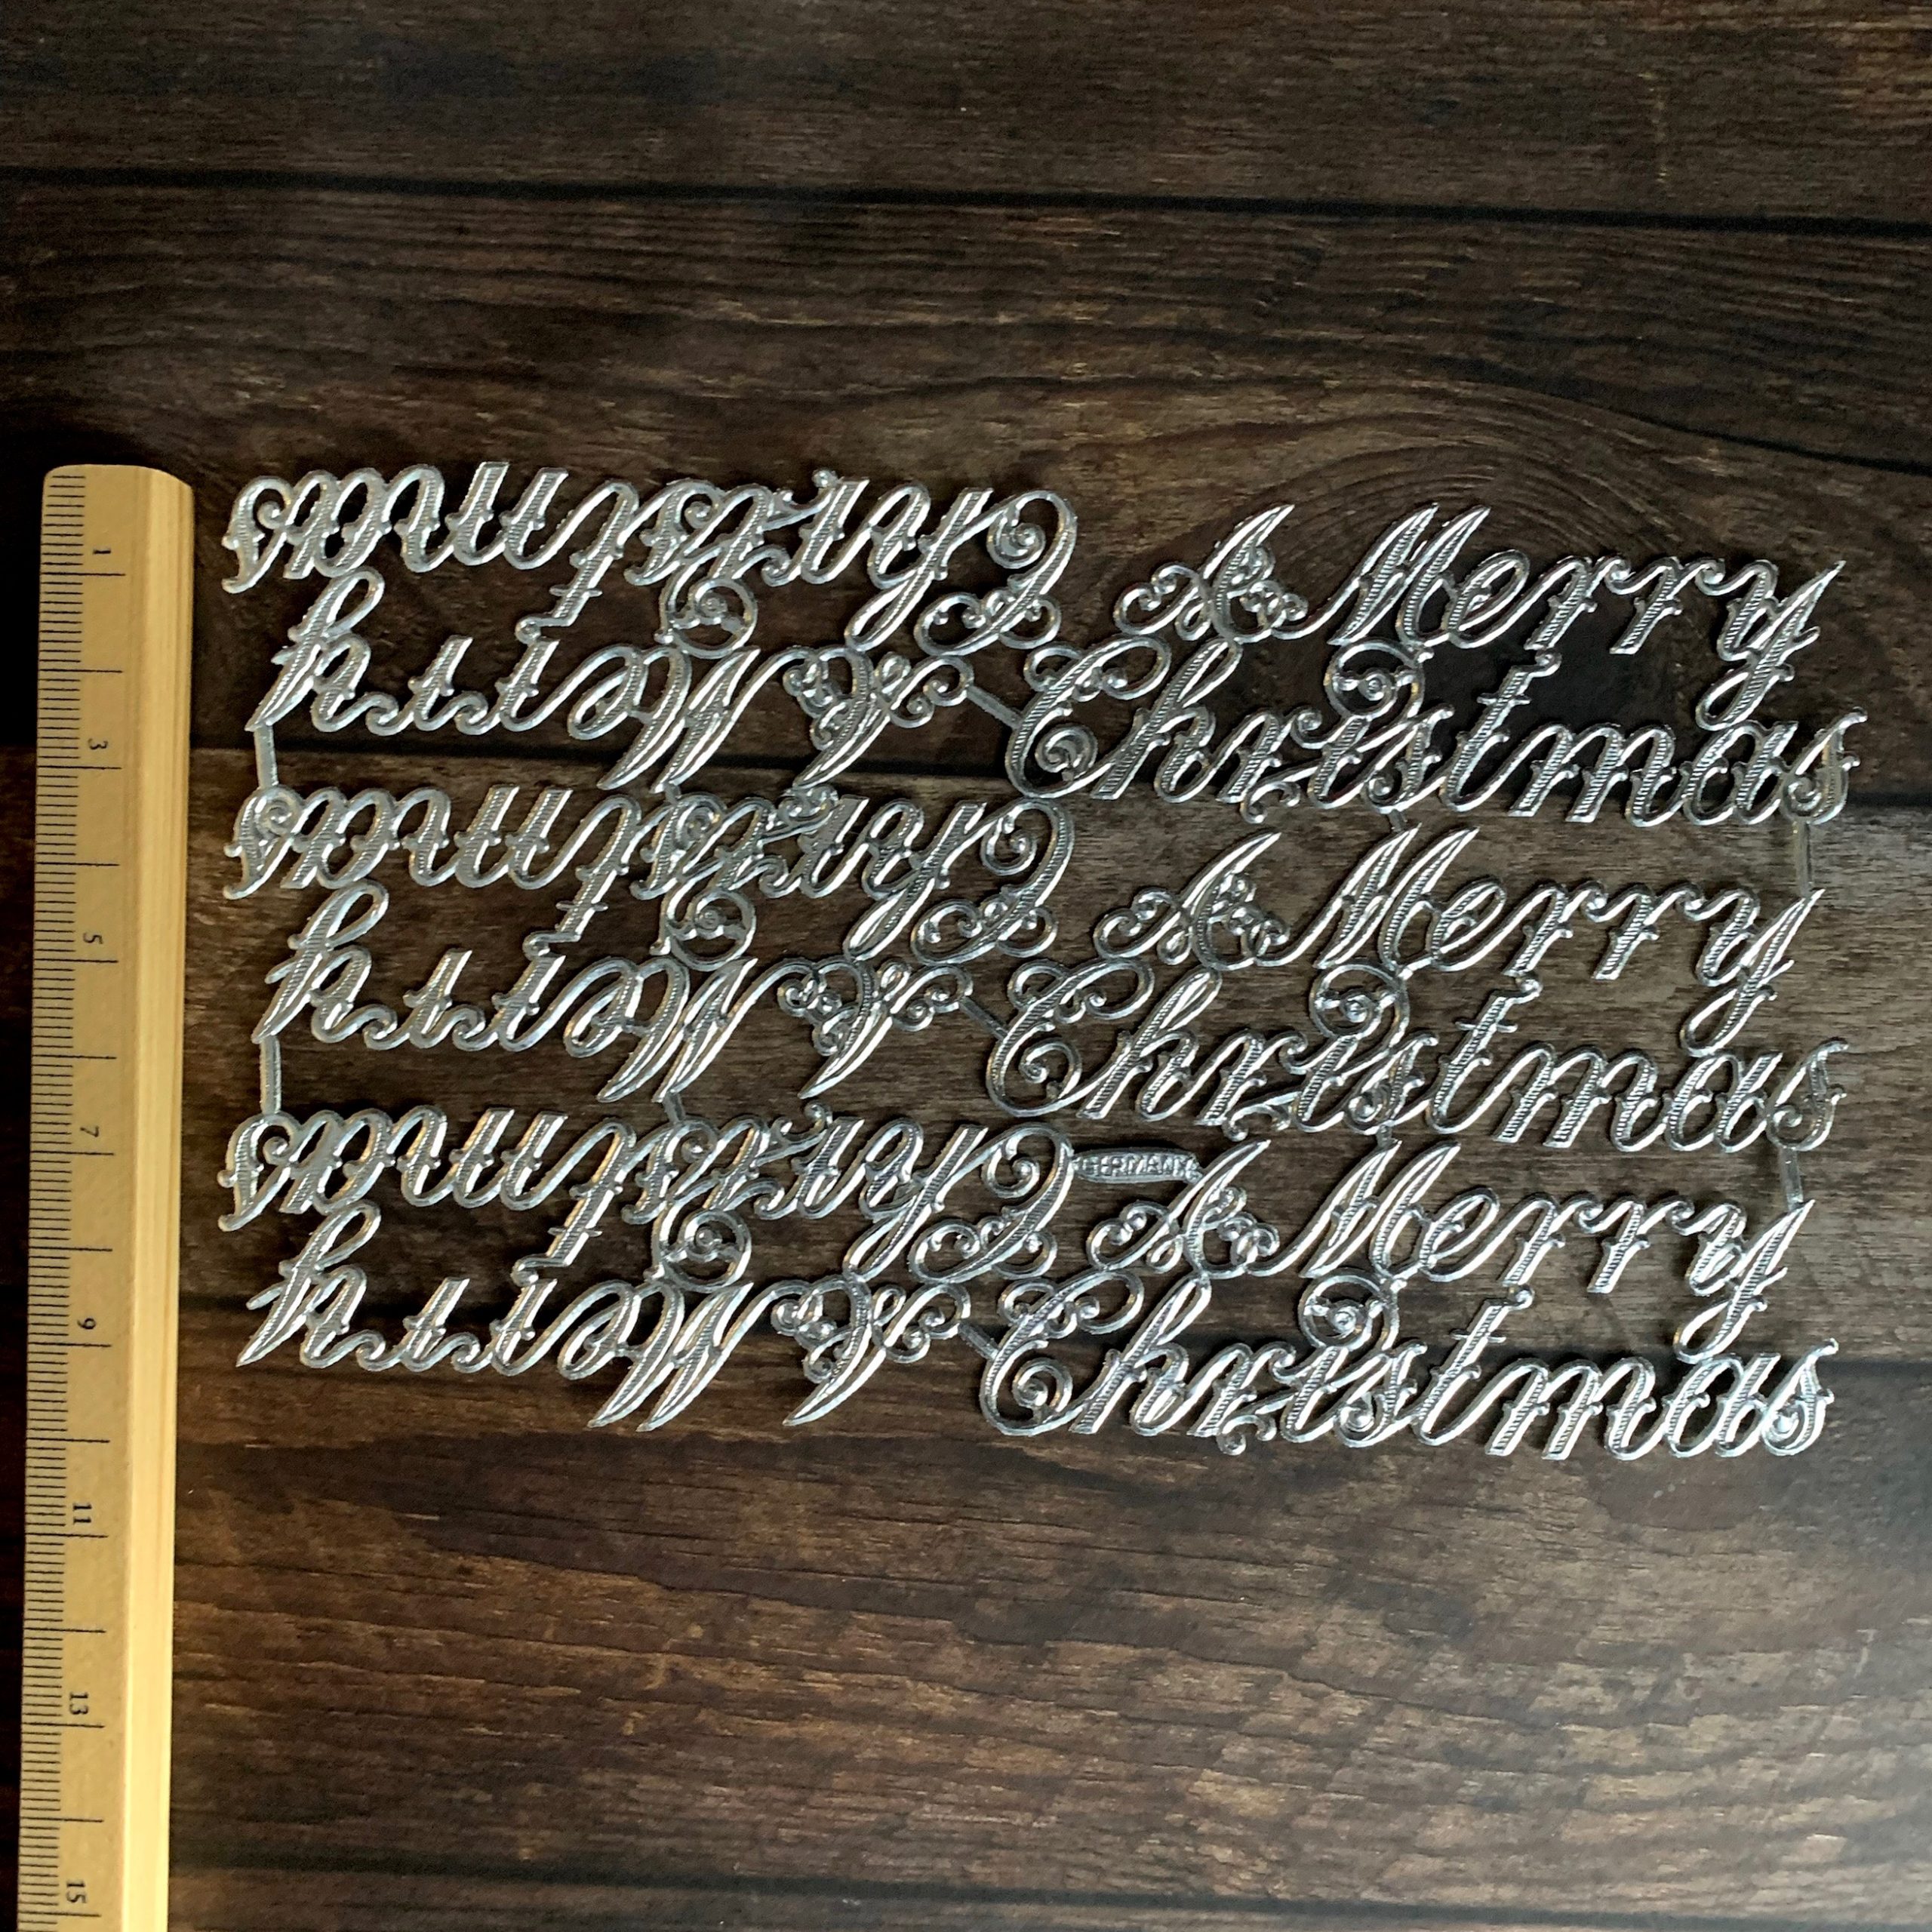 A Merry
Christmas
A Merry
Christmas
A Merry
Christmas
GERMANY
A Merry
Christmas
A Merry
Christmas
A Merry
Christmas
1 3 5 7 9 11 13 15